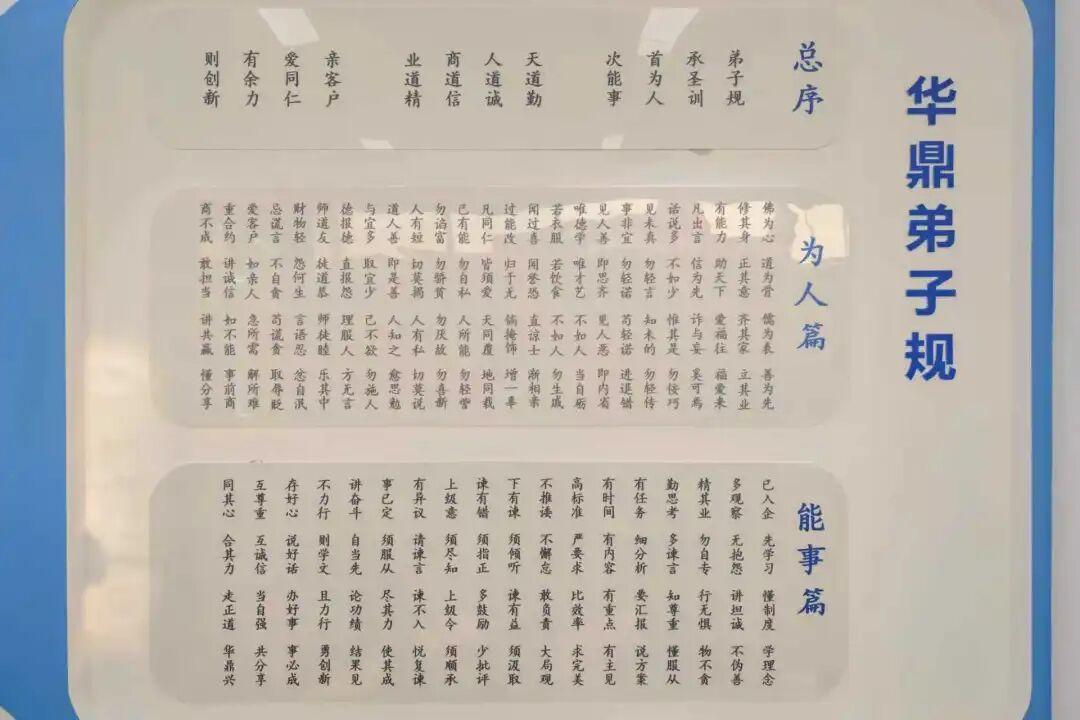 华鼎弟子规
总序
弟子规
承圣训
首为人
次能事
天道勤
人道诚
商道信
业道精
亲客户
爱同仁
有余力
则创新
为人篇
佛为心 道为骨 儒为表 善为先
修其身 正其意 齐其家 立其业
有能力 助天下 爱福往 福爱来
凡出言 信为先 诈与妄 奚可焉
话说多 不如少 惟其是 勿佞巧
见未真 勿轻言 知未的 勿轻传
事非宜 勿轻诺 苟轻诺 进退错
见人善 即思齐 见人恶 即内省
唯德学 唯才艺 不如人 当自砺
若衣服 若饮食 不如人 勿生戚
闻过喜 闻誉恐 直谅士 渐相亲
过能改 归于无 倘掩饰 增一辜
凡同仁 皆须爱 天同覆 地同载
己有能 勿自私 人所能 勿轻訾
勿谄富 勿骄贫 勿厌故 勿喜新
人有短 切莫揭 人有私 切莫说
道人善 即是善 人知之 愈思勉
与宜多 取宜少 己不欲 勿施人
德报德 直报怨 理服人 方无言
师道友 徒道慕 师徒睦 乐其中
财物轻 怨何生 言语忍 忿自泯
忌谎言 不自贪 苟谎贪 取辱贬
爱客户 如亲人 急所需 解所难
重合约 讲诚信 如不能 事前商
商不成 敢担当 讲共赢 懂分享
能事篇
已入企 先学习 懂制度 学理念
多观察 无抱怨 讲担诚 不伪善
精其业 勿自专 行无惧 物不贪
勤思考 多谏言 知尊重 懂服从
有任务 细分析 要汇报 说方案
有时间 有内容 有重点 有主见
高标准 严要求 比效率 求完美
不推诿 不懈怠 敢负责 大局观
下有谏 须倾听 谏有益 须汲取
谏有错 须指正 多鼓励 少批评
上级意 须尽知 上级令 须顺承
有异议 请谏言 谏不入 悦复谏
事已定 须服从 尽其力 使其成
讲奋斗 自当先 论功绩 结果见
不力行 则学文 且力行 勇创新
存好心 说好话 办好事 事必成
互尊重 互诚信 当自强 共分享
同其心 合其力 走正道 华鼎兴